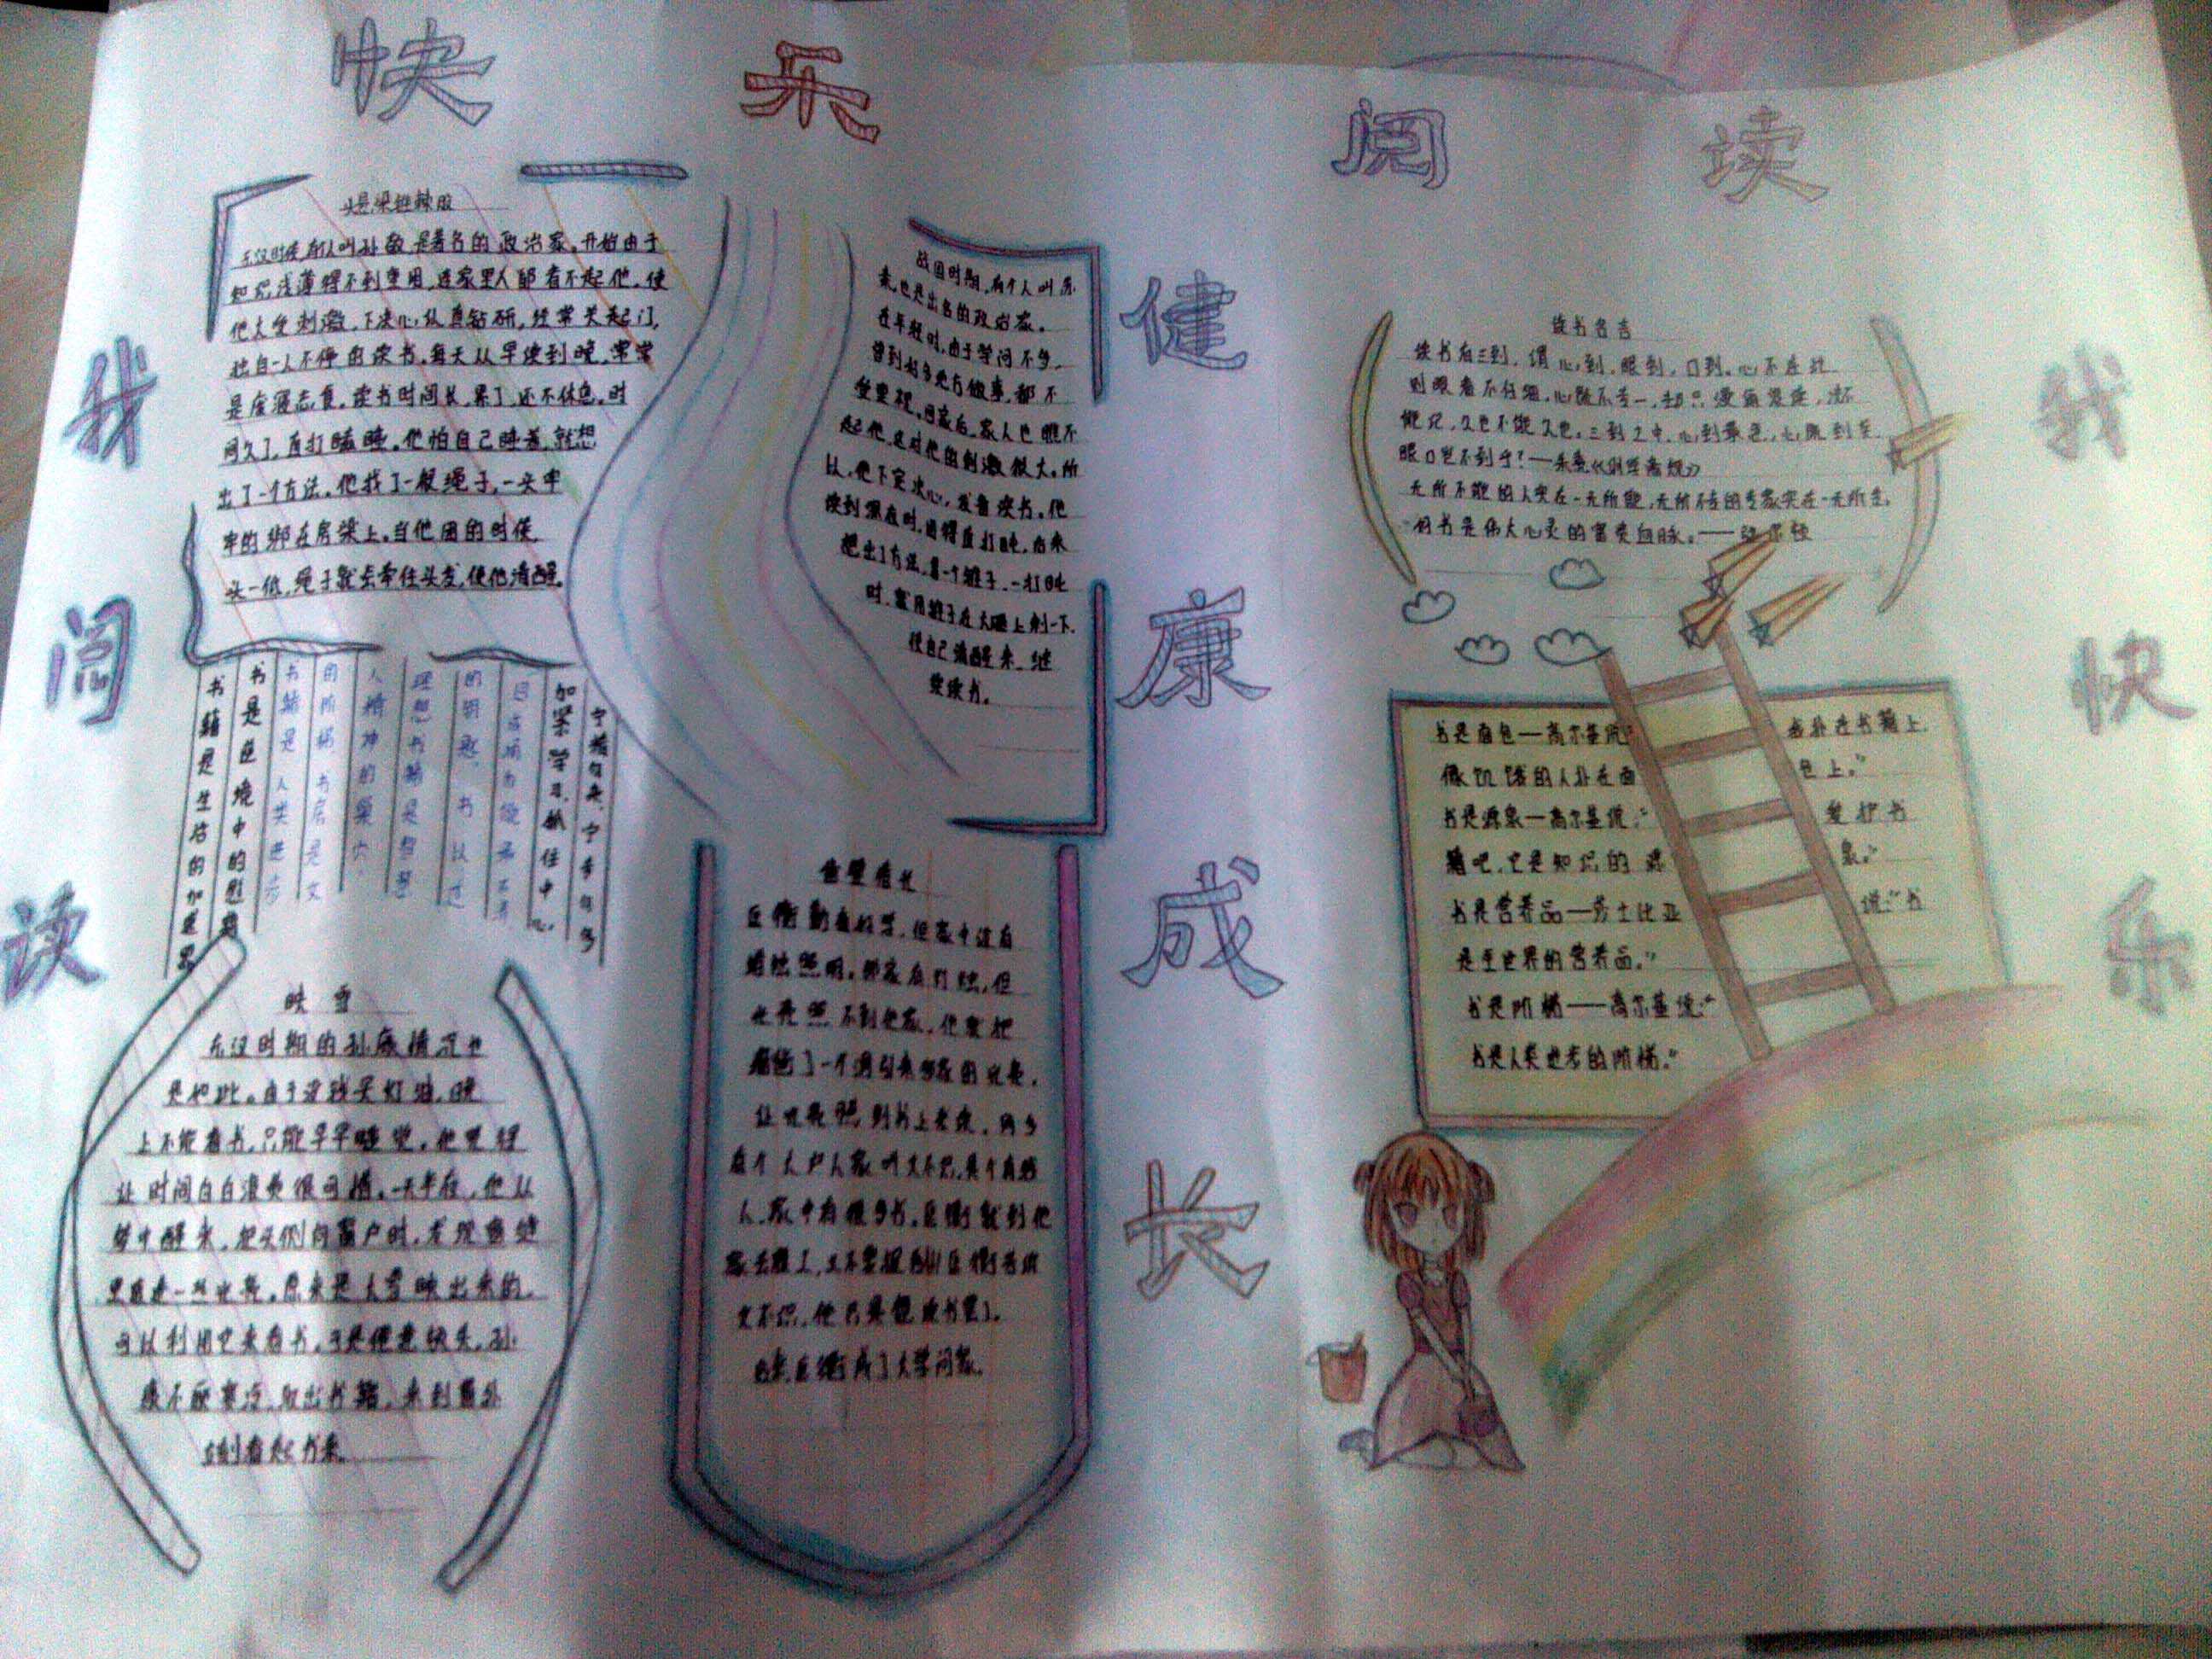 快乐
阅读
健康成长
我阅读
我快乐
头悬梁锥刺股
东汉时候,有人叫孙敬,是著名的政治家,开始由于
知识浅薄得不到重用,连家里人都看不起他,使
他大受刺激,下决心认真钻研,经常关起门,
独自一人不停的读书,每天从早读到晚,常常
是废寝忘食。读书时间长,累了,还不休息。时
间久了,直打瞌睡。他怕自己睡着,就想
出了一个方法,他找了一根绳子,一头牢
牢的绑在房梁上。当他困的时候,
头一低,绳子就会牵住头发,使他清醒。
战国时期,有个人叫苏
秦,也是出名的政治家。
在年轻时,由于学问不多,
曾到好多地方做事,都不
受重视,回家后,家人也瞧不
起他,这对他的刺激很大。所
以,他下定决心,发奋读书。他
读到深夜时,困得直打盹,后来
想出了方法,拿一个锥子,一打盹
时,就用锥子在大腿上刺一下,
使自己清醒来,继
续读书。
书籍是生活的加速器
书是逆境中的慰藉
书籍是人类进步
的阶梯 书房是文
人精神的巢穴
理想书籍是智慧
的钥匙 书以过
加紧学习,抓住中心,
宁精勿杂,宁专勿多
映雪
东汉时期的孙康情况也
是如此。由于没钱买灯油,晚
上不能看书,只能早早睡觉。他觉得
让时间白白浪费很可惜。一天半夜,他从
梦中醒来,把头侧向窗户时,发现窗缝
里透进一丝光亮。原来是大雪映出来的,
可以利用它来看书。于是倦意快失,孙
康不顾寒冷,取出书籍,来到窗外
立刻看起书来。
匡衡勤奋好学,但家中没有
蜡烛照明。邻家有灯烛,但
光亮照不到他家,他就把
墙凿了一个洞引来邻家的光亮,
让光亮照到书上来读。同乡
有个大户人家叫文不识,是个有钱
人,家中有很多书。匡衡就到他
文不识,他只是想读书罢了。
后来匡衡成了大学问家。
读书名言
读书有三到,谓心到,眼到,口到。心不在此,
则眼看不仔细,心既不专一,却只漫浪诵读,决不
能记,久也不能久也。三到之中,心到最急,心既到矣,
眼口岂不到乎?——朱熹《训学斋规》
无所不能的人实在一无所能,无所不专的专家实在一无所专。
好书是伟大心灵的富贵血脉。
书是面包—高尔基说 我扑在书籍上,
像饥饿的人扑在面 包上。”
书是源泉—高尔基说:“ 爱护书
籍吧,它是知识的源 泉。”
书是营养品—莎士比亚 说:“书
是全世界的营养品。”
书是阶梯——高尔基说:“
书是人类进步的阶梯。”